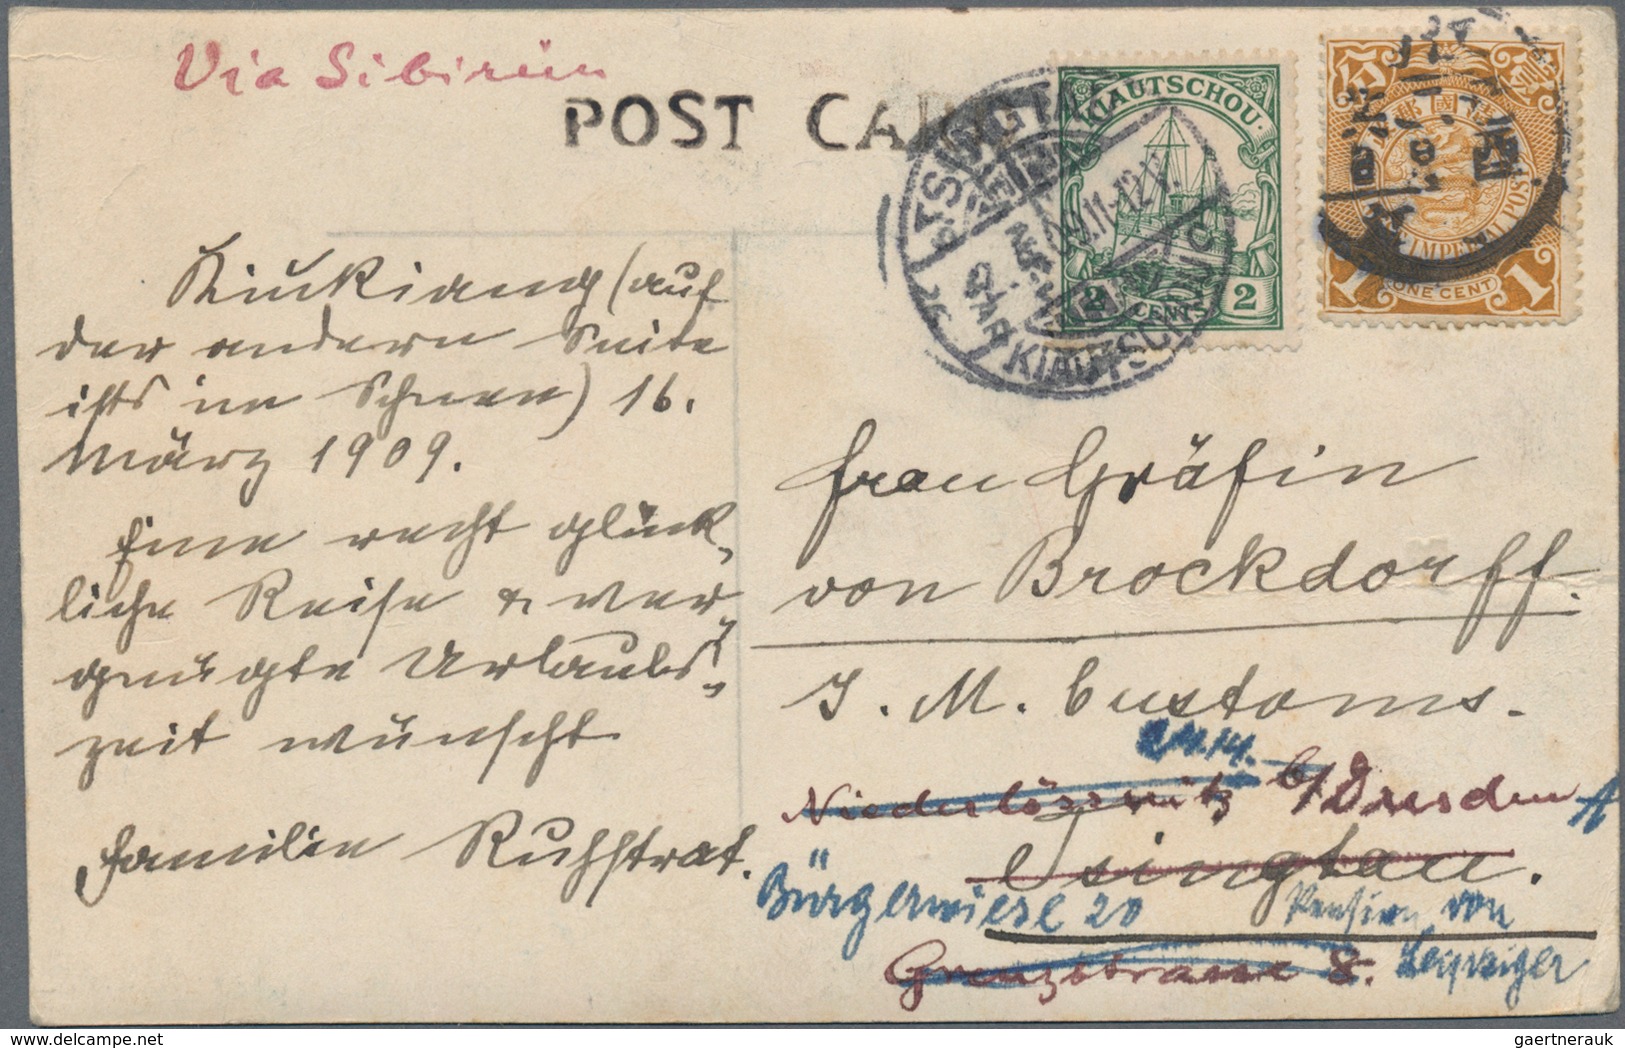 Via Sibirien
POST CARD
KIAUTSCHOU
2 CENTS 2
TSINGTAU
KIAUTSCHOU
IMPERIAL POST
1 ONE CENT 1
Kiukiang (auf
der andern Seite
ists im Schnee) 16.
März 1909.
Eine recht glück-
liche Reise & ver-
gnügte Urlaubs-
zeit wünscht
Familie Ruhstrat.
Frau Gräfin
von Brockdorff.
I. M. Customs.
Niederlössnitz b/Dresden A
Tsingtau.
Bürgerwiese 20 Pension von
Grenzstrasse 8. Leipziger
gaertnerauk